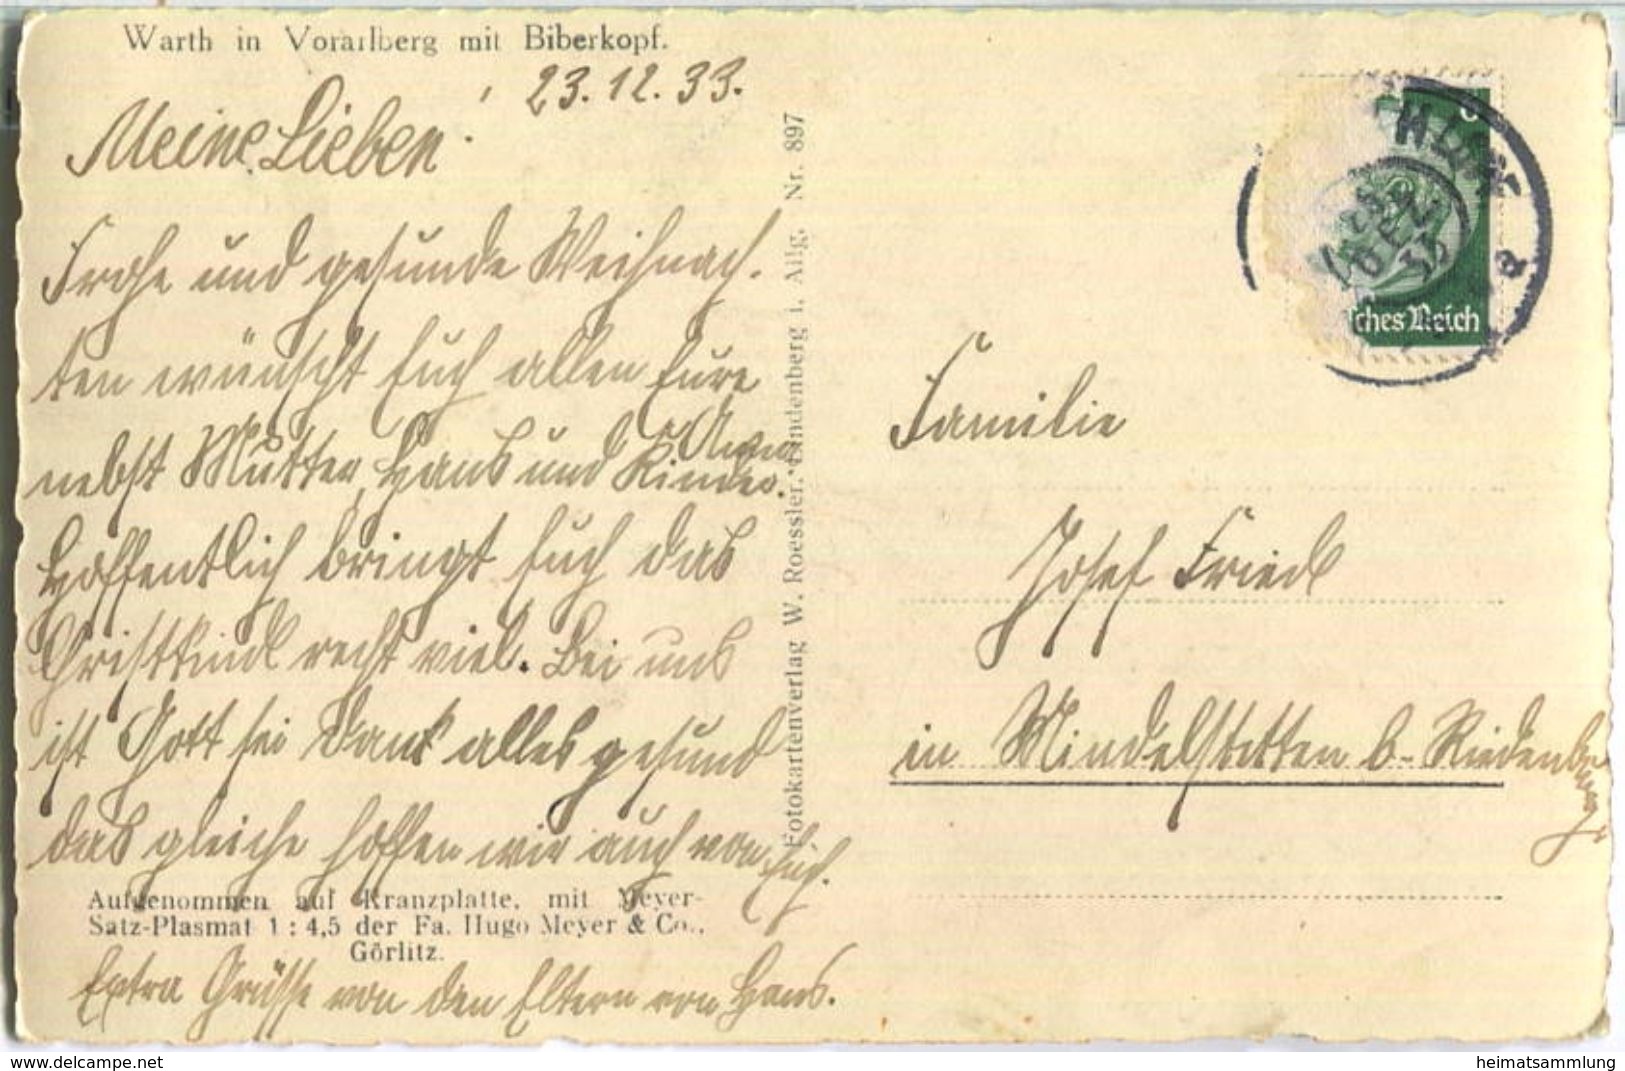 Warth in Vorarlberg mit Biberkopf.
23.12.33.
Meine Lieben!
Frohe und gesunde Weihnach-
ten wünscht Euch allen Eure
Anna
nebst Mutter, Hans und Kinder.
Hoffentlich bringt Euch das
Christkindl recht viel. Bei uns
ist Gott sei Dank alles gesund
das gleiche hoffen wir auch von Euch.
Aufgenommen auf Kranzplatte, mit Meyer-
Satz-Plasmat 1 : 4,5 der Fa. Hugo Meyer & Co.,
Görlitz.
Extra Grüsse von den Eltern von Hans.
Fotokartenverlag W. Roessler, Lindenberg i. Allg. Nr. 897
6
sches Reich
DEZ
33
a
Familie
Josef Friedl
in Mindelstetten b. Riedenburg
delcampe.net
heimatsammlung